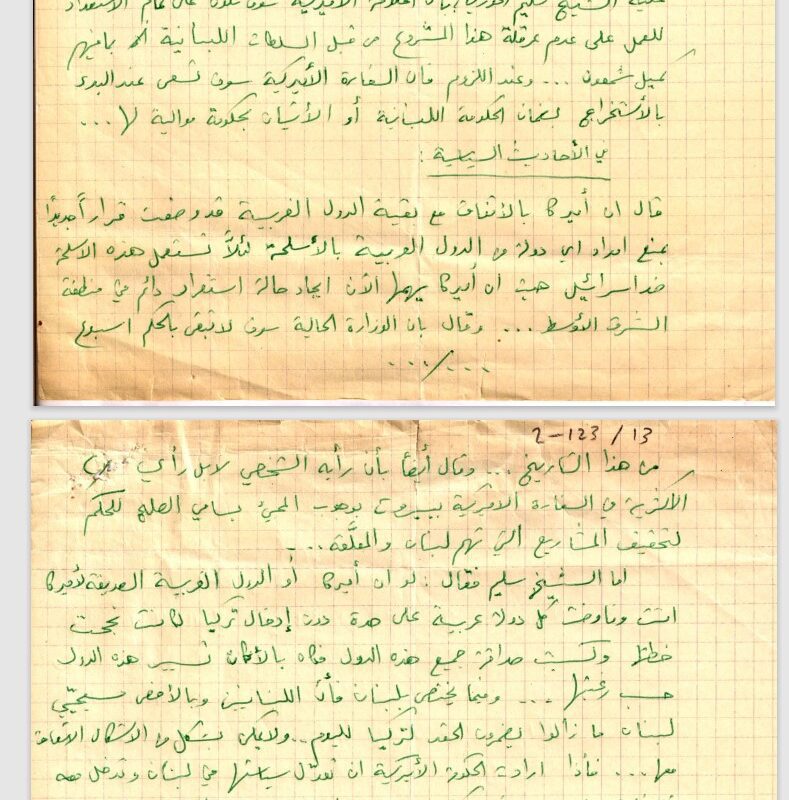 الشيخ سليم الخوري بأن العلاقة الأميركية سوف تكون على تمام الاستعداد
للعمل على عدم عرقلة هذا المشروع من قبل السلطات اللبنانية بما فيهم
كميل شمعون ... وعند اللزوم فان السفارة الأميركية سوف تسعى عند البدء
بالأستخراج لضمان الحكومة اللبنانية أو الأتيان بحكومة موالية لها ...
في الأحاديث السياسية :
قال ان أميركا بالأتفاق مع بقية الدول الغربية قد وضعت قراراً جديداً
بمنع امداد اي دولة من الدول العربية بالأسلحة لئلاَّ تستعمل هذه الاسلحة
ضد اسرائيل حيث ان أميركا يهمها الآن ايجاد حالة استقرار دائم في منطقة
الشرق الأوسط ... وقال بان الوزارة الحالية سوف لا تبقى بالحكم اسبوع
.../...
2-123/13
من هذا التاريخ ... وقال أيضاً بأن رأيه الشخصي لا بل رأي
الاكثرية في السفارة الاميركية ببيروت بوجوب المجيء بسامي الصلح للحكم
لتخفيف المشاريع التي تهم لبنان والمعلَّقة ...
اما الشيخ سليم فقال : لو ان أميركا أو الدول الغربية الصديقة لأميركا
اتت وفاوضت كل دولة عربية على حدة دون إدخال تركيا لكانت نجحت
خطتها وكسبت صداقة جميع هذه الدول وكان بالأمكان تسيير هذه الدول
حسب رغبتها ... وفيما يختص بلبنان فأن اللبنانيين وبالأخص مسيحيّي
لبنان ما زالوا يضمرون الحقد لتركيا لليوم .. ولا يمكن بشكل من الاشكال الاتفاق
معها ... فأذا ارادت الحكومة الأميركية ان تعدّل سياستها في لبنان وتدخل معه